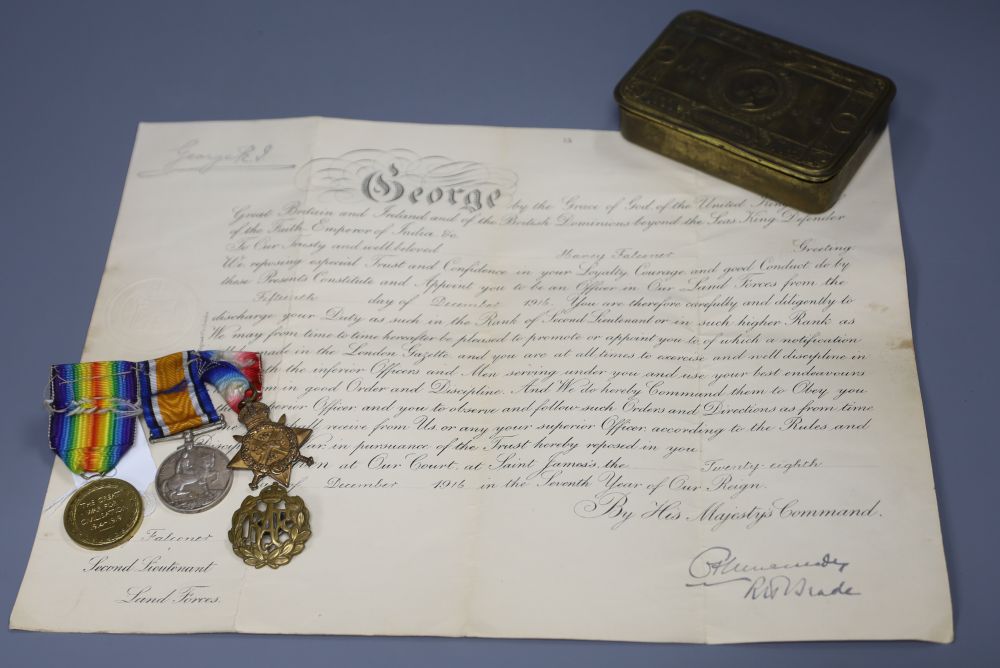 George R.I.
George by the Grace of God, of the United King
Great Britain and Ireland and of the British Dominions beyond the Seas King Defender
of the Faith, Emperor of India &c.
To Our Trusty and well beloved Harry Falconer Greeting
We reposing especial Trust and Confidence in your Loyalty Courage and good Conduct do by
these Presents Constitute and Appoint you to be an Officer in Our Land Forces from the
Fifteenth day of December 1916. You are therefore carefully and diligently to
discharge your Duty as such in the Rank of Second Lieutenant or in such higher Rank as
We may from time to time hereafter be pleased to promote or appoint you to of which a notification
made in the London Gazette and you are at all times to exercise and well discipline in
the inferior Officers and Men serving under you and use your best endeavours
in good Order and Discipline. And We do hereby Command them to Obey you
Superior Officer and you to observe and follow such Orders and Directions as from time
receive from Us or any your superior Officer according to the Rules and
War in pursuance of the Trust hereby reposed in you
at Our Court, at Saint James's the Twenty-eighth
of December 1916 in the Seventh Year of Our Reign.
By His Majesty's Command.
THE GREAT
WAR FOR
CIVILISATION
1914-1919
Falconer
Second Lieutenant
Land Forces.